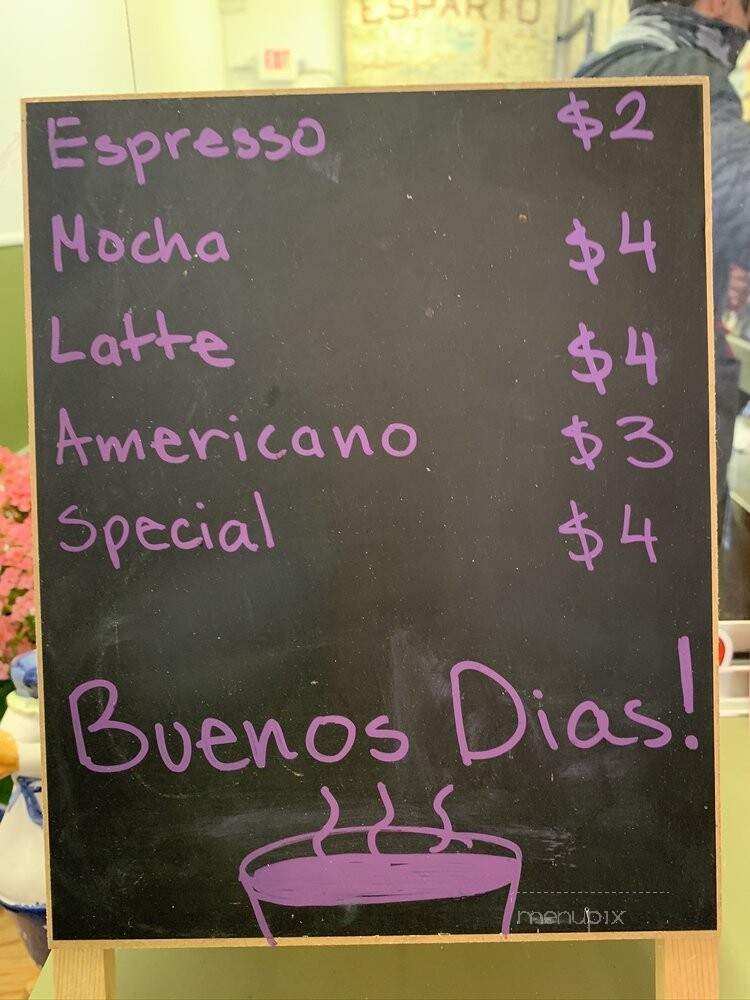 ESPARTO
EXIT
Espresso $2
Mocha $4
Latte $4
Americano $3
Special $4
Buenos Dias!
menupix